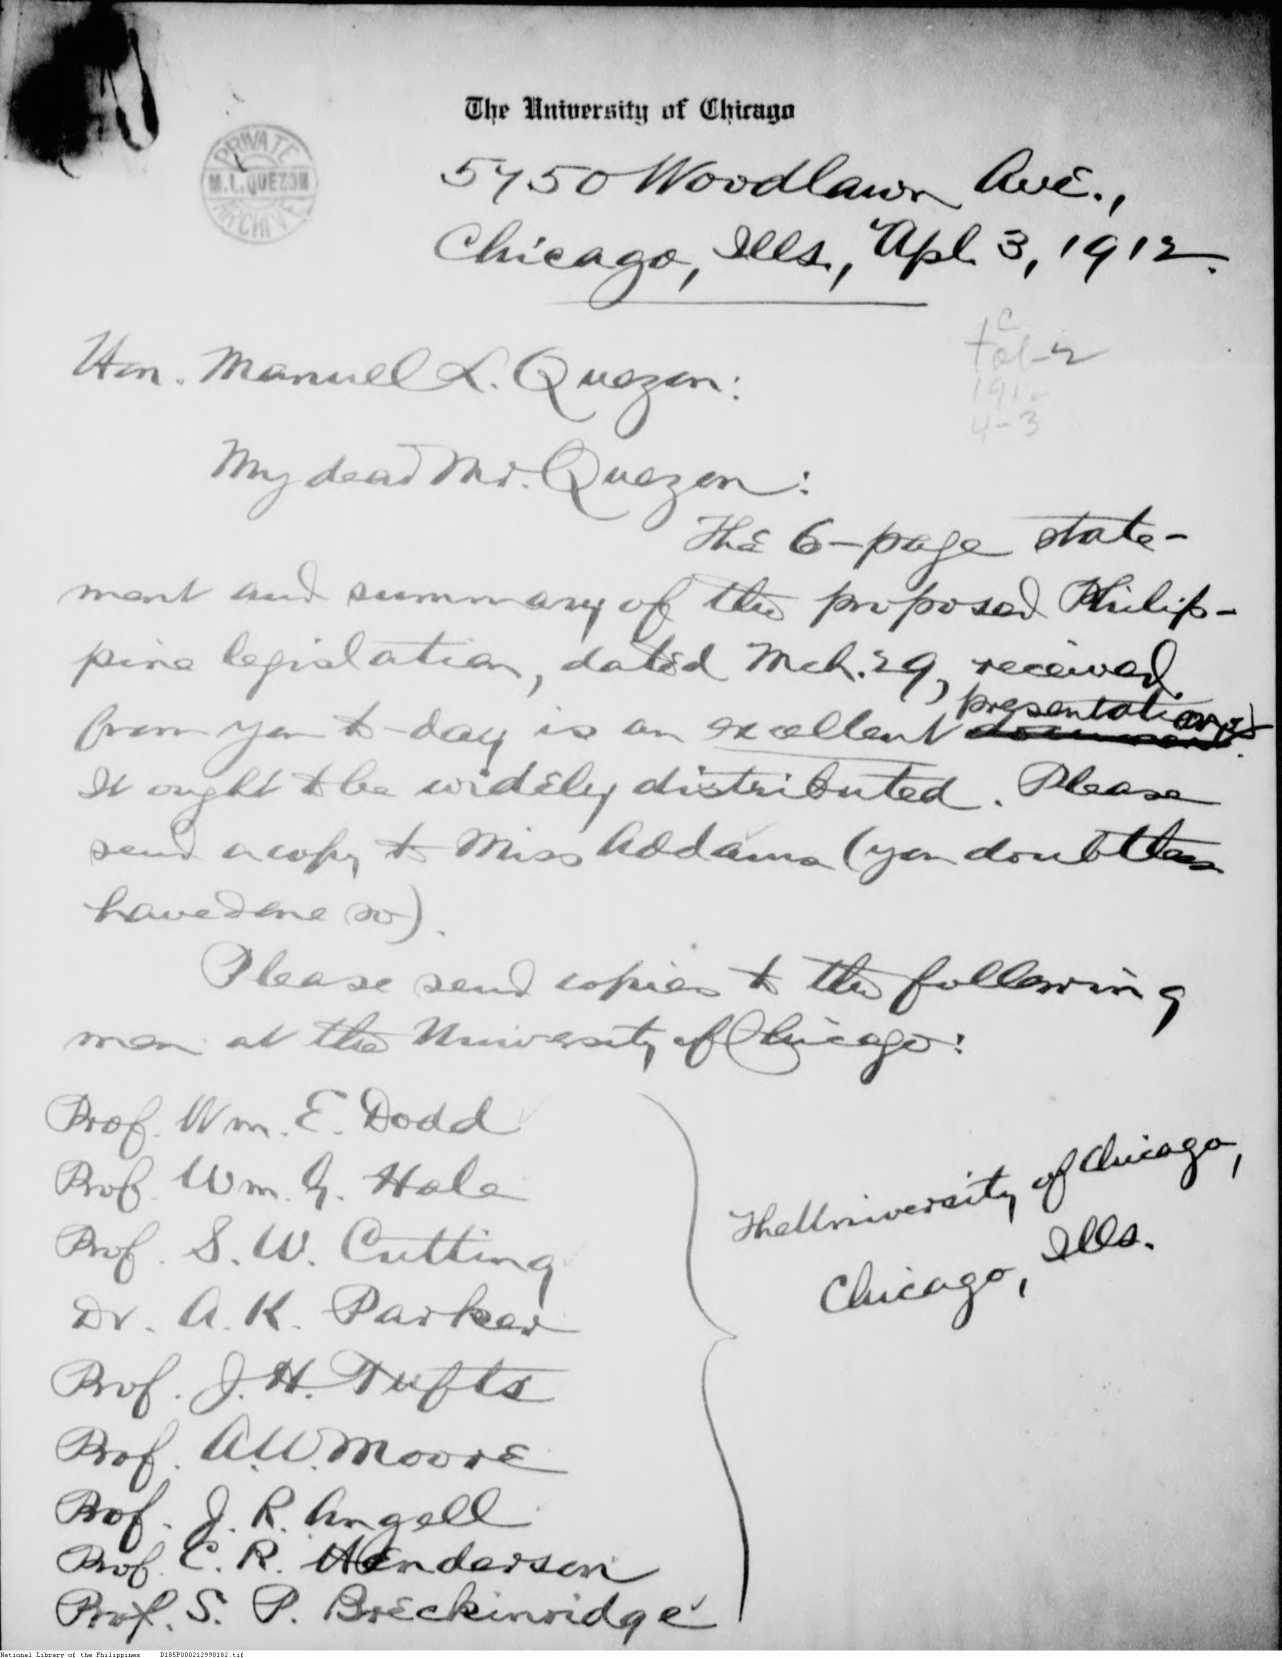 The University of Chicago
PRIVATE
M. L. QUEZON
ARCHIVE
5750 Woodlawn Ave.,
Chicago, Ills., Apl. 3, 1912.
1912
4-3
Hon. Manuel L. Quezon:
My dear Mr. Quezon:
The 6-page state-
ment and summary of the proposed Philip-
pine legislation, dated Mch. 29, received
presentation
from you to-day is an excellent document.
It ought to be widely distributed. Please
send a copy to Miss Addams (you doubtless
have done so).
Please send copies to the following
men at the University of Chicago:
Prof. Wm. E. Dodd
Prof. Wm. G. Hale
Prof. S. W. Cutting
Dr. A. K. Parker
Prof. J. H. Tufts
Prof. A. W. Moore
Prof. J. R. Angell
Prof. C. R. Henderson
Prof. S. P. Breckinridge
The University of Chicago,
Chicago, Ills.
National Library of the Philippines D185P000212990182.tif